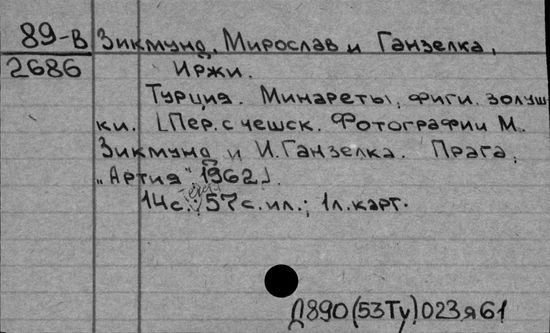 89-В Зикмунд, Мирослав и Ганзелка,
2686 Иржи.
Турция. Минареты, фиги, золуш
ки. [Пер. с чешск. Фотографии М.
Зикмунд и И. Ганзелка. Прага,
„Артия" 1962].
14 с.; 57 с. ил.; 1 л. карт.
Д890(53Ту)023я61